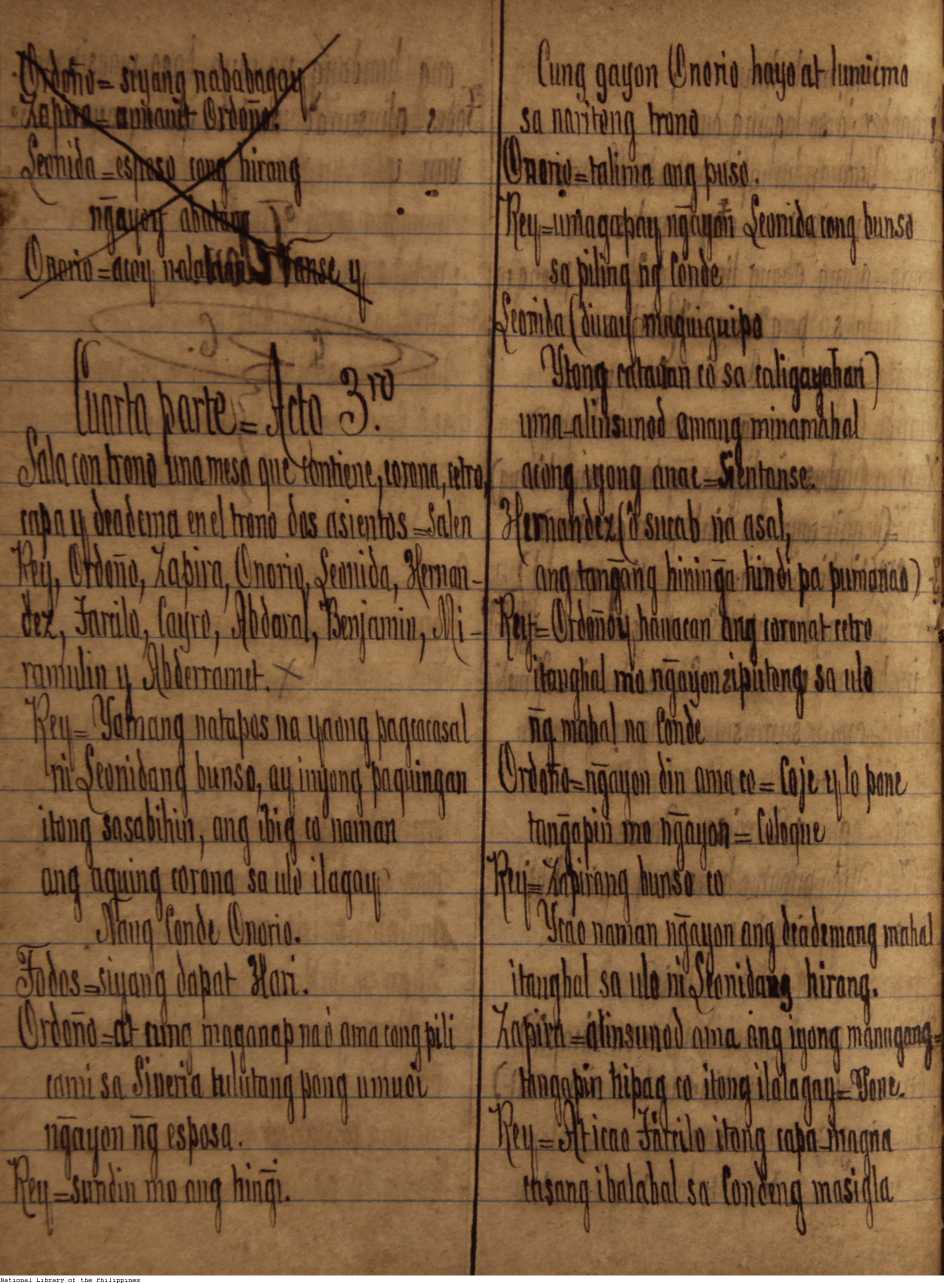 Ordoño = siyang nababagay
Zapira = aumanit Ordoño.
Leonida = esposo cong hirang
ng̃ayoy abuting
Onorio = acoy nalalaan Sitanse y
Cuarta parte = Acto 3.ro
Sala con trono una mesa que contiene, corona, cetro,
capa y deadema en el trono dos asientos = Salen
Rey, Ordoño, Zapira, Onorio, Leonida, Hernan-
dez, Farilo, Cayro, Abdaral, Benjamin, Mi-
ramulin y Abderramet.
Rey = Yamang natapos na yaong pagcacasal
ni Leonidang bunso, ay inyong paquingan
itong sasabihin, ang ibig co naman
ang aquing corona sa ulo ilagay
Nang Conde Onorio.
Todos = siyang dapat Hari.
Ordoño = at cung maganap na ó ama cong pili
cami sa Siveria tulutang pong umuui
ng̃ayon ng̃ esposa.
Rey = sundin mo ang hing̃i.
Cung gayon Onorio hayo at lumucmo
sa naritong trono
Onorio = talima ang puso.
Rey = umagapay ng̃ayon Leonida cong bunso
sa piling ng̃ Conde
Leonida (diuay maguiguipo
Ytong catauan co sa caligayahan)
uma-alinsunod amang minamahal
acong iyong anac = Sientanse.
Hernandez (ó sucab na asal,
ang tang̃ang hining̃a hindi pa pumanao)
Rey = Ordoñoy hauacan ang coronat cetro
itanghal mo ng̃ayon ziputong sa ulo
ng̃ mahal na Conde
Ordoño = ng̃ayon din ama co = Coje y lo pone
tang̃apin mo ng̃ayon = Coloque
Rey = Zapirang bunso co
Ycao naman ng̃ayon ang deademang mahal
itanghal sa ulo ni Leonidang hirang.
Zapira = alinsunod ama ang iyong manugang =
tang̃apin hipag co itong ilalagay = Pone.
Rey = At icao Farilo itong capa-magna
ihsang ibalabal sa Condeng masigla
National Library of the Philippines